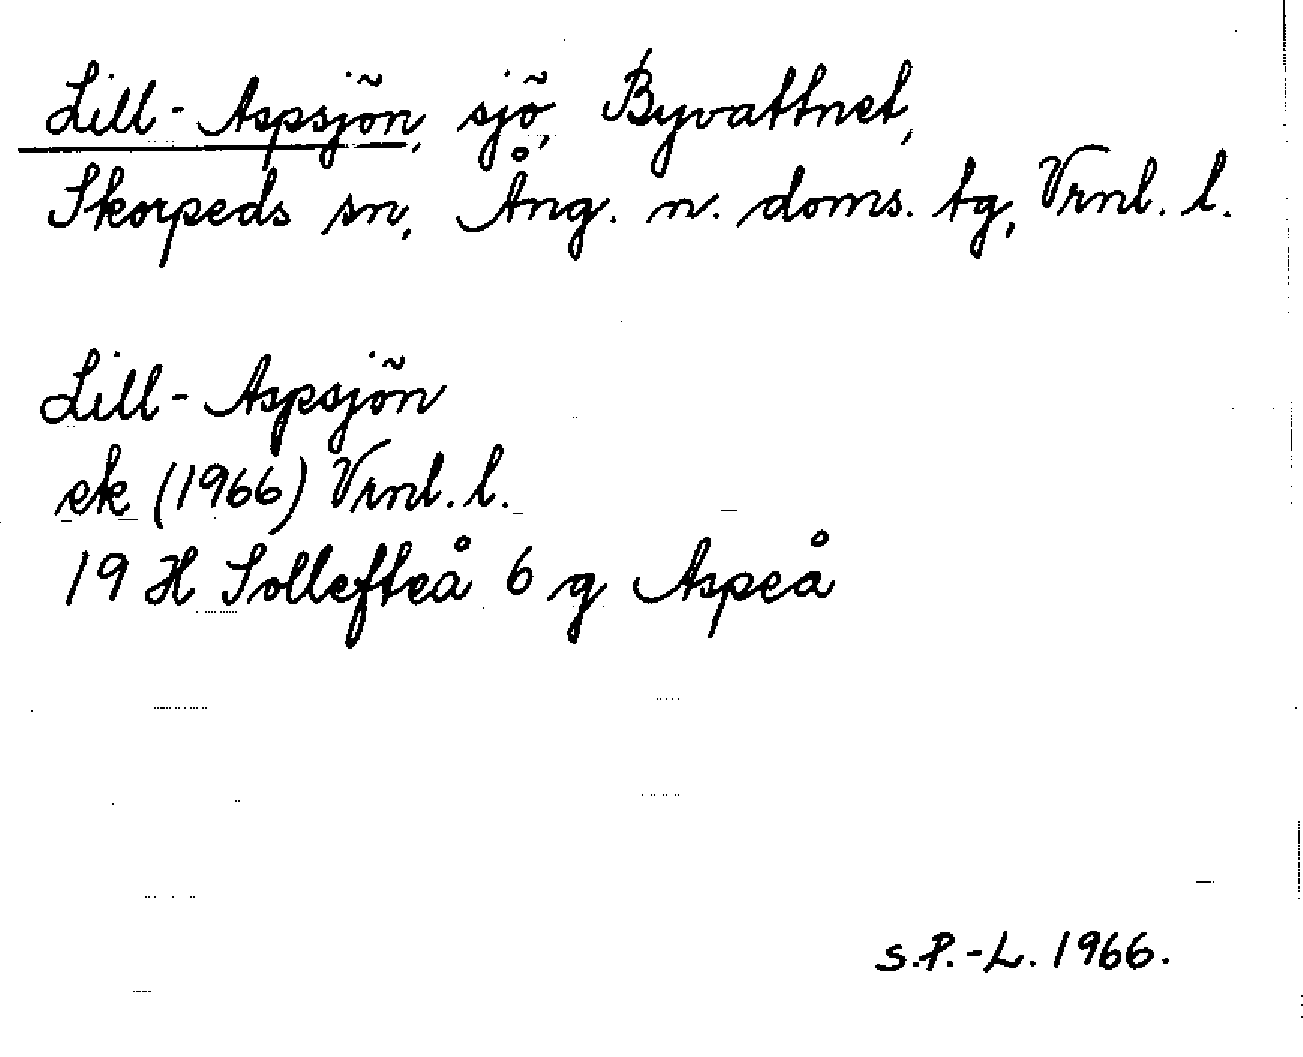 Lill-Aspsjön, sjö, Byvattnet,
Skorpeds sn, Ång. n. doms. tg, Vrnl. l.
Lill-Aspsjön
ek (1966) Vrnl. l.
19 H Sollefteå 6 g Aspeå
S.P.-L. 1966.